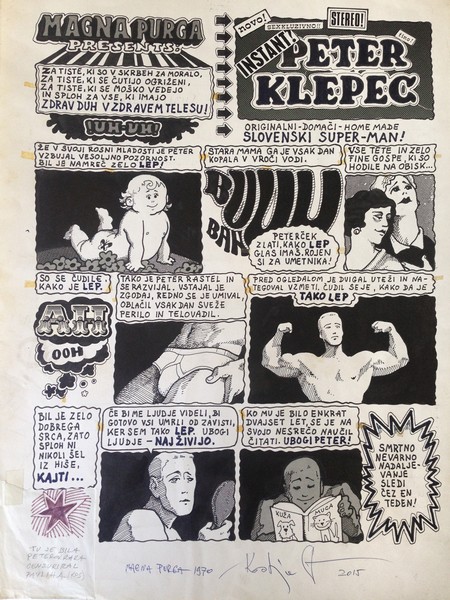 MAGNA PURGA
PRESENTS:
ZA TISTE, KI SO V SKRBEH ZA MORALO,
ZA TISTE, KI SE ČUTIJO OGRŽENI,
ZA TISTE, KI SE MOŠKO VEDEJO
IN SPLOH ZA VSE, KI IMAJO
ZDRAV DUH V ZDRAVEM TELESU!
!UH-UH!
novo!
SEXKLUZIVNO!!
STEREO!
fino!
INSTANT!
PETER
KLEPEC
ORIGINALNI-DOMAČI-HOME MADE
SLOVENSKI SUPER-MAN!
ŽE V SVOJI ROSNI MLADOSTI JE PETER
VZBUJAL VESOLJNO POZORNOST.
BIL JE NAMREČ ZELO LEP!
STARA MAMA GA JE VSAK DAN
KOPALA V VROČI VODI.
BUUU
BAN
PETERČEK
ZLATI, KAKO LEP
GLAS IMAŠ. ROJEN
SI ZA UMETNIKA!
VSE TETE IN ZELO
FINE GOSPE, KI SO
HODILE NA OBISK...
SO SE ČUDILE
KAKO JE LEP.
AH
OOH
TAKO JE PETER RASTEL IN
SE RAZVIJAL. VSTAJAL JE
ZGODAJ, REDNO SE JE UMIVAL,
OBLAČIL VSAK DAN SVEŽE
PERILO IN TELOVADIL.
PRED OGLEDALOM JE DVIGAL UTEŽI IN NA-
TEGOVAL VZMETI. ČUDIL SE JE, KAKO DA JE
TAKO LEP
BIL JE ZELO
DOBREGA
SRCA, ZATO
SPLOH NI
NIKOLI ŠEL
IZ HIŠE,
KAJTI...
ČE BI ME LJUDJE VIDELI, BI
GOTOVO VSI UMRLI OD ZAVISTI,
KER SEM TAKO LEP. UBOGI
LJUDJE - NAJ ŽIVIJO.
KO MU JE BILO ENKRAT
DVAJSET LET, SE JE NA
SVOJO NESREČO NAUČIL
ČITATI. UBOGI PETER!
KUŽA
MUCA
SMRTNO
NEVARNO
NADALJE-
VANJE
SLEDI
ČEZ EN
TEDEN!
TU JE BILA
MAGNA PURGA 1970
2015